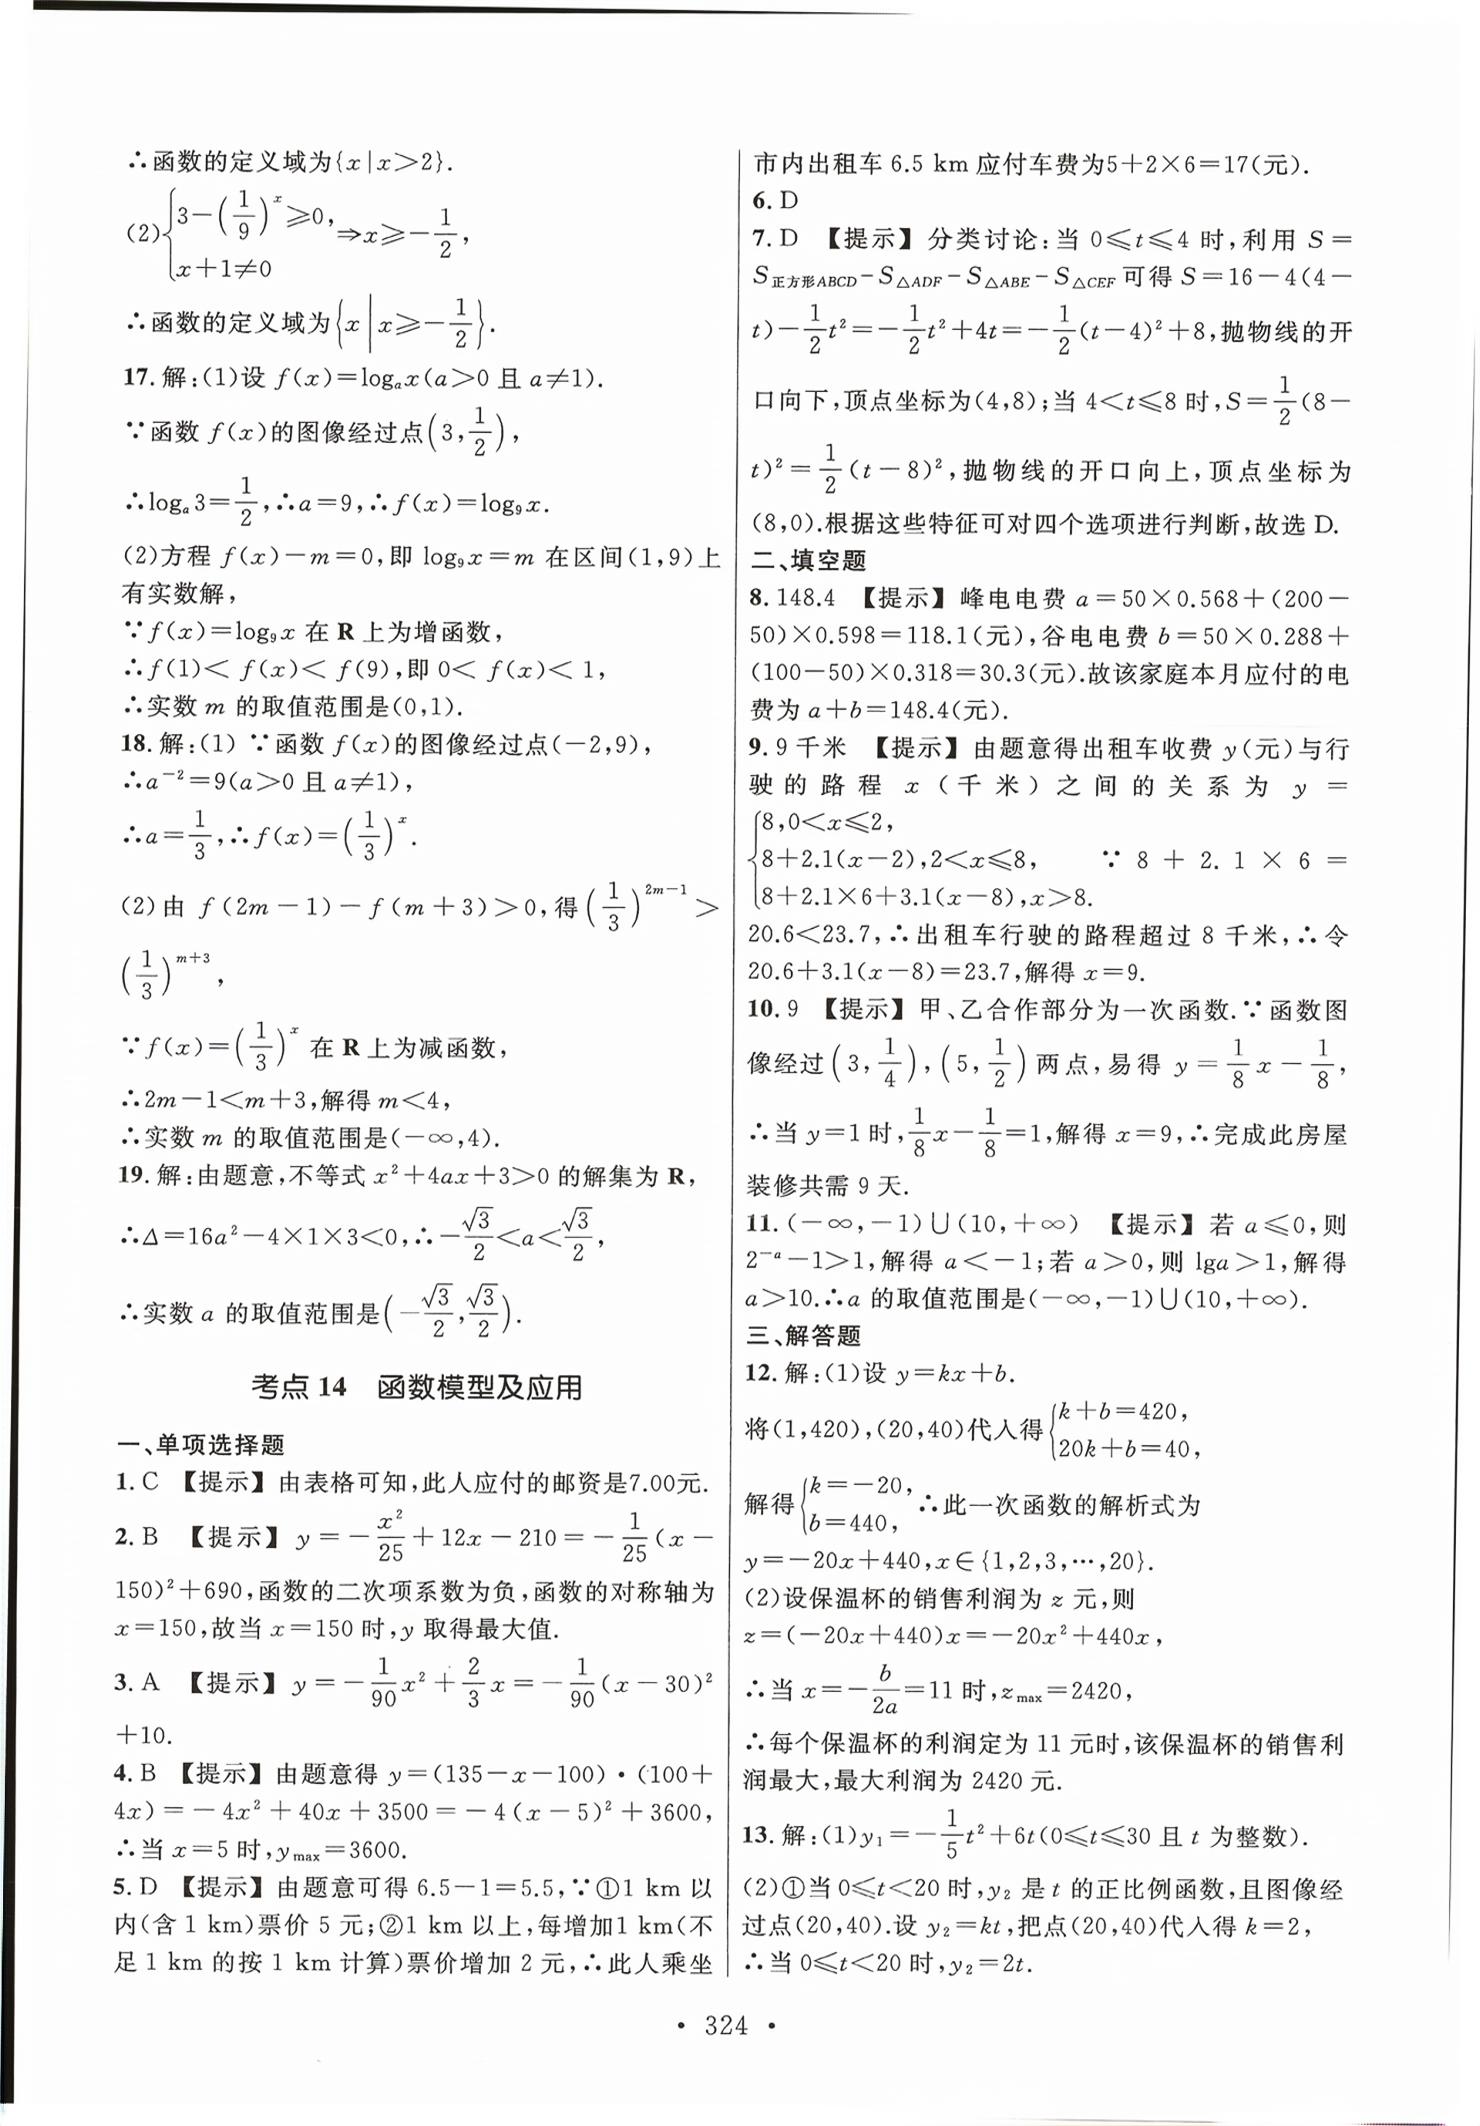 ∴函数的定义域为{x|x>2}.
(2){3-(1/9)^x≥0, x+1≠0 ⇒x≥-1/2,
∴函数的定义域为{x|x≥-1/2}.
17.解:(1)设 f(x)=logₐx(a>0 且 a≠1).
∵函数 f(x)的图像经过点(3,1/2),
∴logₐ3=1/2,∴a=9,∴f(x)=log₉x.
(2)方程 f(x)-m=0,即 log₉x=m 在区间(1,9)上
有实数解,
∵f(x)=log₉x 在 R 上为增函数,
∴f(1)< f(x)< f(9),即 0< f(x)< 1,
∴实数 m 的取值范围是(0,1).
18.解:(1) ∵函数 f(x)的图像经过点(-2,9),
∴a⁻²=9(a>0 且 a≠1),
∴a=1/3,∴f(x)=(1/3)^x.
(2)由 f(2m-1)-f(m+3)>0,得(1/3)^(2m-1)>
(1/3)^(m+3),
∵f(x)=(1/3)^x 在 R 上为减函数,
∴2m-1<m+3,解得 m<4,
∴实数 m 的取值范围是(-∞,4).
19.解:由题意,不等式 x²+4ax+3>0 的解集为 R,
∴Δ=16a²-4×1×3<0,∴-√3/2<a<√3/2,
∴实数 a 的取值范围是(-√3/2,√3/2).
考点 14 函数模型及应用
一、单项选择题
1.C 【提示】由表格可知,此人应付的邮资是7.00元.
2.B 【提示】y=-x²/25+12x-210=-1/25(x-
150)²+690,函数的二次项系数为负,函数的对称轴为
x=150,故当 x=150 时,y 取得最大值.
3.A 【提示】y=-1/90x²+2/3x=-1/90(x-30)²
+10.
4.B 【提示】由题意得 y=(135-x-100)·(100+
4x)=-4x²+40x+3500=-4(x-5)²+3600,
∴当 x=5 时,y_max=3600.
5.D 【提示】由题意可得 6.5-1=5.5,∵①1 km 以
内(含 1 km)票价 5 元;②1 km 以上,每增加1 km(不
足 1 km 的按 1 km 计算)票价增加 2 元,∴此人乘坐
市内出租车 6.5 km 应付车费为5+2×6=17(元).
6.D
7.D 【提示】分类讨论:当 0≤t≤4 时,利用 S=
S正方形ABCD-S△ADF-S△ABE-S△CEF可得 S=16-4(4-
t)-1/2t²=-1/2t²+4t=-1/2(t-4)²+8,抛物线的开
口向下,顶点坐标为(4,8);当 4<t≤8 时,S=1/2(8-
t)²=1/2(t-8)²,抛物线的开口向上,顶点坐标为
(8,0).根据这些特征可对四个选项进行判断,故选 D.
二、填空题
8.148.4 【提示】峰电电费 a=50×0.568+(200-
50)×0.598=118.1(元),谷电电费 b=50×0.288+
(100-50)×0.318=30.3(元).故该家庭本月应付的电
费为 a+b=148.4(元).
9.9 千米 【提示】由题意得出租车收费 y(元)与行
驶的路程 x(千米)之间的关系为 y=
{8,0<x≤2,
8+2.1(x-2),2<x≤8, ∵8+2.1×6=
8+2.1×6+3.1(x-8),x>8.
20.6<23.7,∴出租车行驶的路程超过 8 千米,∴令
20.6+3.1(x-8)=23.7,解得 x=9.
10.9 【提示】甲、乙合作部分为一次函数.∵函数图
像经过(3,1/4),(5,1/2)两点,易得 y=1/8x-1/8,
∴当 y=1 时,1/8x-1/8=1,解得 x=9,∴完成此房屋
装修共需 9 天.
11.(-∞,-1)∪(10,+∞) 【提示】若 a≤0,则
2^(-a)-1>1,解得 a<-1;若 a>0,则 lga>1,解得
a>10.∴a 的取值范围是(-∞,-1)∪(10,+∞).
三、解答题
12.解:(1)设 y=kx+b.
将(1,420),(20,40)代入得{k+b=420, 20k+b=40,
解得{k=-20, b=440, ∴此一次函数的解析式为
y=-20x+440,x∈{1,2,3,⋯,20}.
(2)设保温杯的销售利润为 z 元,则
z=(-20x+440)x=-20x²+440x,
∴当 x=-b/2a=11 时,z_max=2420,
∴每个保温杯的利润定为 11 元时,该保温杯的销售利
润最大,最大利润为 2420 元.
13.解:(1)y₁=-1/5t²+6t(0≤t≤30 且 t 为整数).
(2)①当 0≤t<20 时,y₂ 是 t 的正比例函数,且图像经
过点(20,40).设 y₂=kt,把点(20,40)代入得 k=2,
∴当 0≤t<20 时,y₂=2t.
· 324 ·